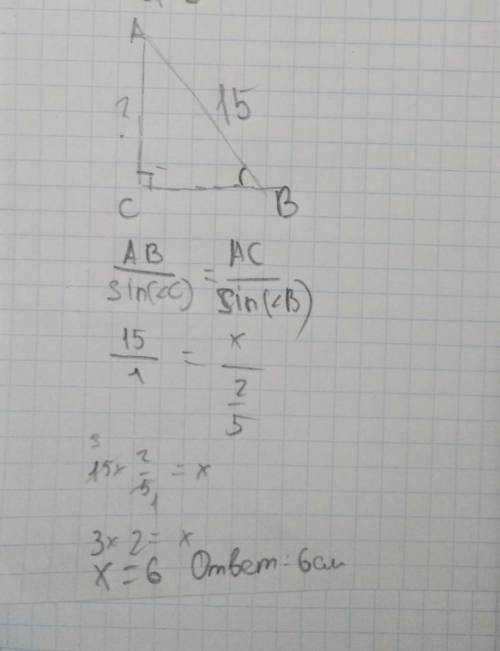 A
?
15
C
B
AB/sin(<C) = AC/sin(<B)
15/1 = x/(2/5)
3
15 × 2/5 = x
1
3 × 2 = x
x = 6 Ответ: 6см